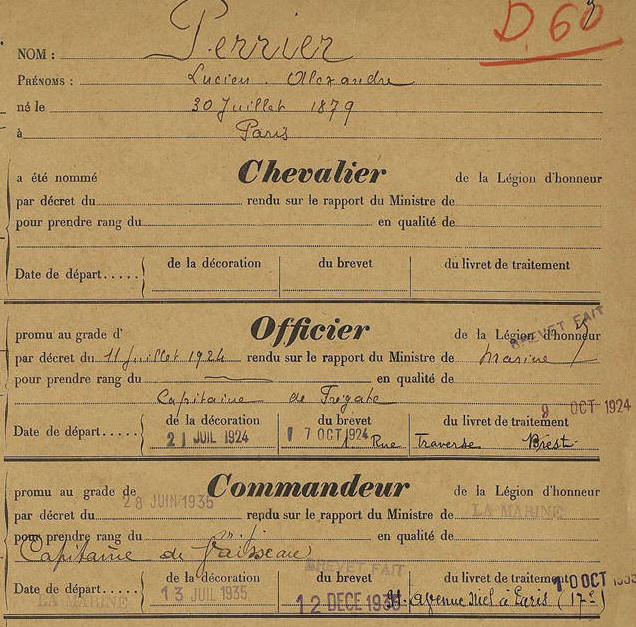 D. 60
NOM : Perrier
PRÉNOMS : Lucien. Alexandre
né le 30 Juillet 1879
à Paris
a été nommé Chevalier de la Légion d'honneur
par décret du rendu sur le rapport du Ministre de
pour prendre rang du en qualité de
Date de départ..... de la décoration du brevet du livret de traitement
BREVET FAIT
promu au grade d' Officier de la Légion d'honneur
par décret du 11 Juillet 1924 rendu sur le rapport du Ministre de Marine
pour prendre rang du en qualité de
Capitaine de Frégate
9 OCT 1924
Date de départ..... de la décoration du brevet du livret de traitement
21 JUIL 1924 17 OCT 1924 1. Rue Traverse Brest
promu au grade de Commandeur de la Légion d'honneur
28 JUIN 1935
par décret du rendu sur le rapport du Ministre de LA MARINE
pour prendre rang du en qualité de
Capitaine de Vaisseau
BREVET FAIT
Date de départ..... de la décoration du brevet du livret de traitement 10 OCT 1935
LA MARINE 13 JUIL 1935 12 DECE 1935 avenue Niel à Paris (17e)